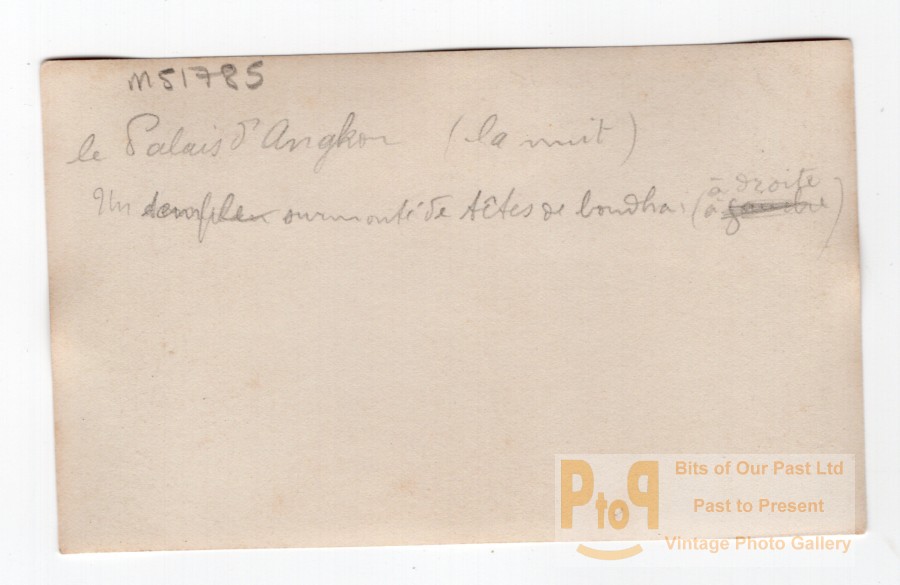 M51785
le Palais d'Angkor (la nuit)
Un temple surmonté de têtes de boudha (à droite
à gauche)
PtoP
Bits of Our Past Ltd
Past to Present
Vintage Photo Gallery